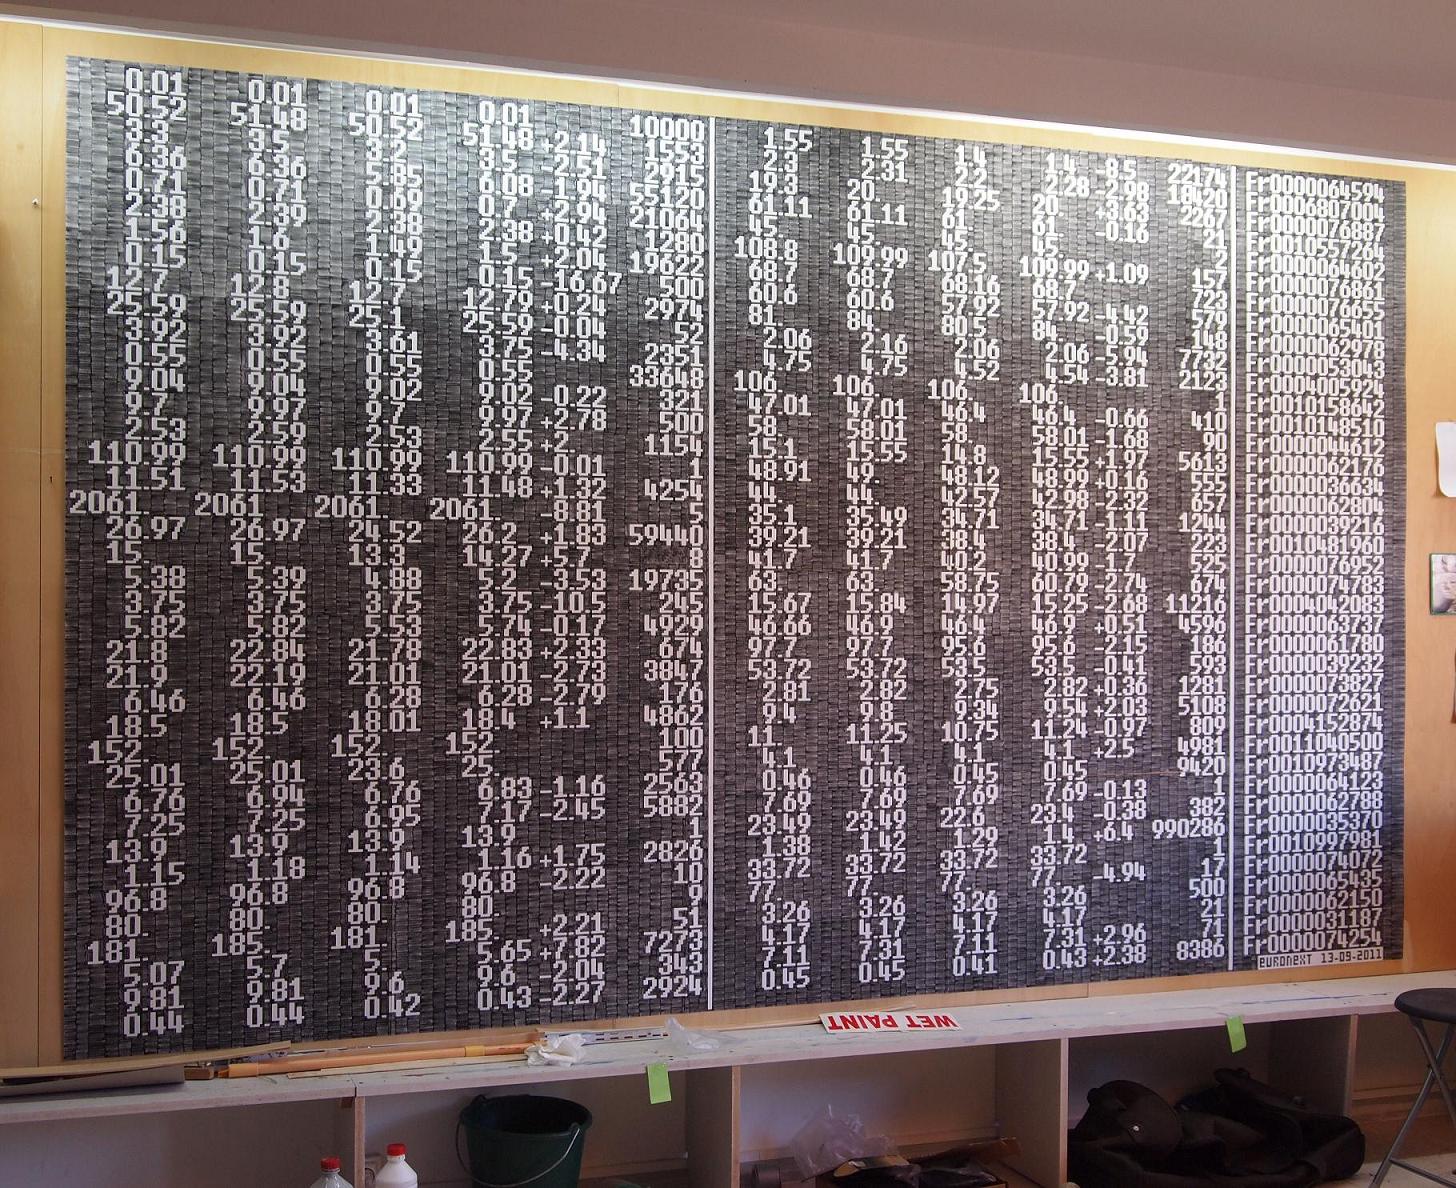 0.01 0.01 0.01 0.01 10000 1.55 1.55 1.4 1.4 -8.5 22174 Fr0000064594
50.52 51.48 50.52 51.48 +2.14 1553 2.3 2.31 2.2 2.28 -2.98 18420 Fr0006807004
3.3 3.5 3.2 3.5 -2.51 2915 19.3 20. 19.25 20. +3.63 2267 Fr0000076887
6.36 6.36 5.85 6.08 -1.94 55120 61.11 61.11 61. 61. -0.16 21 Fr0010557264
0.71 0.71 0.69 0.7 +2.94 21064 45. 45. 45. 45. 2 Fr0000064602
2.38 2.39 2.38 2.38 +0.42 1280 108.8 109.99 107.5 109.99 +1.09 157 Fr0000076861
1.56 1.6 1.49 1.5 +2.04 19622 68.7 68.7 68.16 68.7 723 Fr0000076655
0.15 0.15 0.15 0.15 -16.67 500 60.6 60.6 57.92 57.92 -4.42 579 Fr0000065401
12.7 12.8 12.7 12.79 +0.24 2974 81. 84. 80.5 84. -0.59 148 Fr0000062978
25.59 25.59 25.1 25.59 -0.04 52 2.06 2.16 2.06 2.06 -5.94 7732 Fr0000053043
3.92 3.92 3.61 3.75 -4.34 2351 4.75 4.75 4.52 4.54 -3.81 2123 Fr0004005924
0.55 0.55 0.55 0.55 33648 106. 106. 106. 106. 1 Fr0010158642
9.04 9.04 9.02 9.02 -0.22 321 47.01 47.01 46.4 46.4 -0.66 410 Fr0010148510
9.7 9.97 9.7 9.97 +2.78 500 58. 58.01 58. 58.01 -1.68 90 Fr0000044612
2.53 2.59 2.53 2.55 +2 1154 15.1 15.55 14.8 15.55 +1.97 5613 Fr0000062176
110.99 110.99 110.99 110.99 -0.01 1 48.91 49. 48.12 48.99 +0.16 555 Fr0000036634
11.51 11.53 11.33 11.48 +1.32 4254 44. 44. 42.57 42.98 -2.32 657 Fr0000062804
2061. 2061. 2061. 2061. -8.81 5 35.1 35.49 34.71 34.71 -1.11 1244 Fr0000039216
26.97 26.97 24.52 26.2 +1.83 59440 39.21 39.21 38.4 38.4 -2.07 223 Fr0010481960
15. 15. 13.3 14.27 +5.7 8 41.7 41.7 40.2 40.99 -1.7 525 Fr0000076952
5.38 5.39 4.88 5.2 -3.53 19735 63. 63. 58.75 60.79 -2.74 674 Fr0000074783
3.75 3.75 3.75 3.75 -10.5 245 15.67 15.84 14.97 15.25 -2.68 11216 Fr0004042083
5.82 5.82 5.53 5.74 -0.17 4929 46.66 46.9 46.4 46.9 +0.51 4596 Fr0000063737
21.8 22.84 21.78 22.83 +2.33 674 97.7 97.7 95.6 95.6 -2.15 186 Fr0000061780
21.9 22.19 21.01 21.01 -2.73 3847 53.72 53.72 53.5 53.5 -0.41 593 Fr0000039232
6.46 6.46 6.28 6.28 -2.79 176 2.81 2.82 2.75 2.82 +0.36 1281 Fr0000073827
18.5 18.5 18.01 18.4 +1.1 4862 9.4 9.8 9.34 9.54 +2.03 5108 Fr0000072621
152. 152. 152. 152. 100 11. 11.25 10.75 11.24 -0.97 809 Fr0004152874
25.01 25.01 23.6 25. 577 4.1 4.1 4.1 4.1 +2.5 4981 Fr0011040500
6.76 6.94 6.76 6.83 -1.16 2563 0.46 0.46 0.45 0.45 9420 Fr0010973487
7.25 7.25 6.95 7.17 -2.45 5882 7.69 7.69 7.69 7.69 -0.13 1 Fr0000064123
13.9 13.9 13.9 13.9 1 23.49 23.49 22.6 23.4 -0.38 382 Fr0000062788
1.15 1.18 1.14 1.16 +1.75 2826 1.38 1.42 1.29 1.4 +6.4 990286 Fr0000035370
96.8 96.8 96.8 96.8 -2.22 10 33.72 33.72 33.72 33.72 1 Fr0010997981
80. 80. 80. 80. 9 77. 77. 77. 77. -4.94 17 Fr0000074072
181. 185. 181. 185. +2.21 51 3.26 3.26 3.26 3.26 500 Fr0000065435
5.07 5.7 5. 5.65 +7.82 7273 4.17 4.17 4.17 4.17 21 Fr0000062150
9.81 9.81 9.6 9.6 -2.04 343 7.11 7.31 7.11 7.31 +2.96 71 Fr0000031187
0.44 0.44 0.42 0.43 -2.27 2924 0.45 0.45 0.41 0.43 +2.38 8386 Fr0000074254
euronext 13-09-2011
WET PAINT